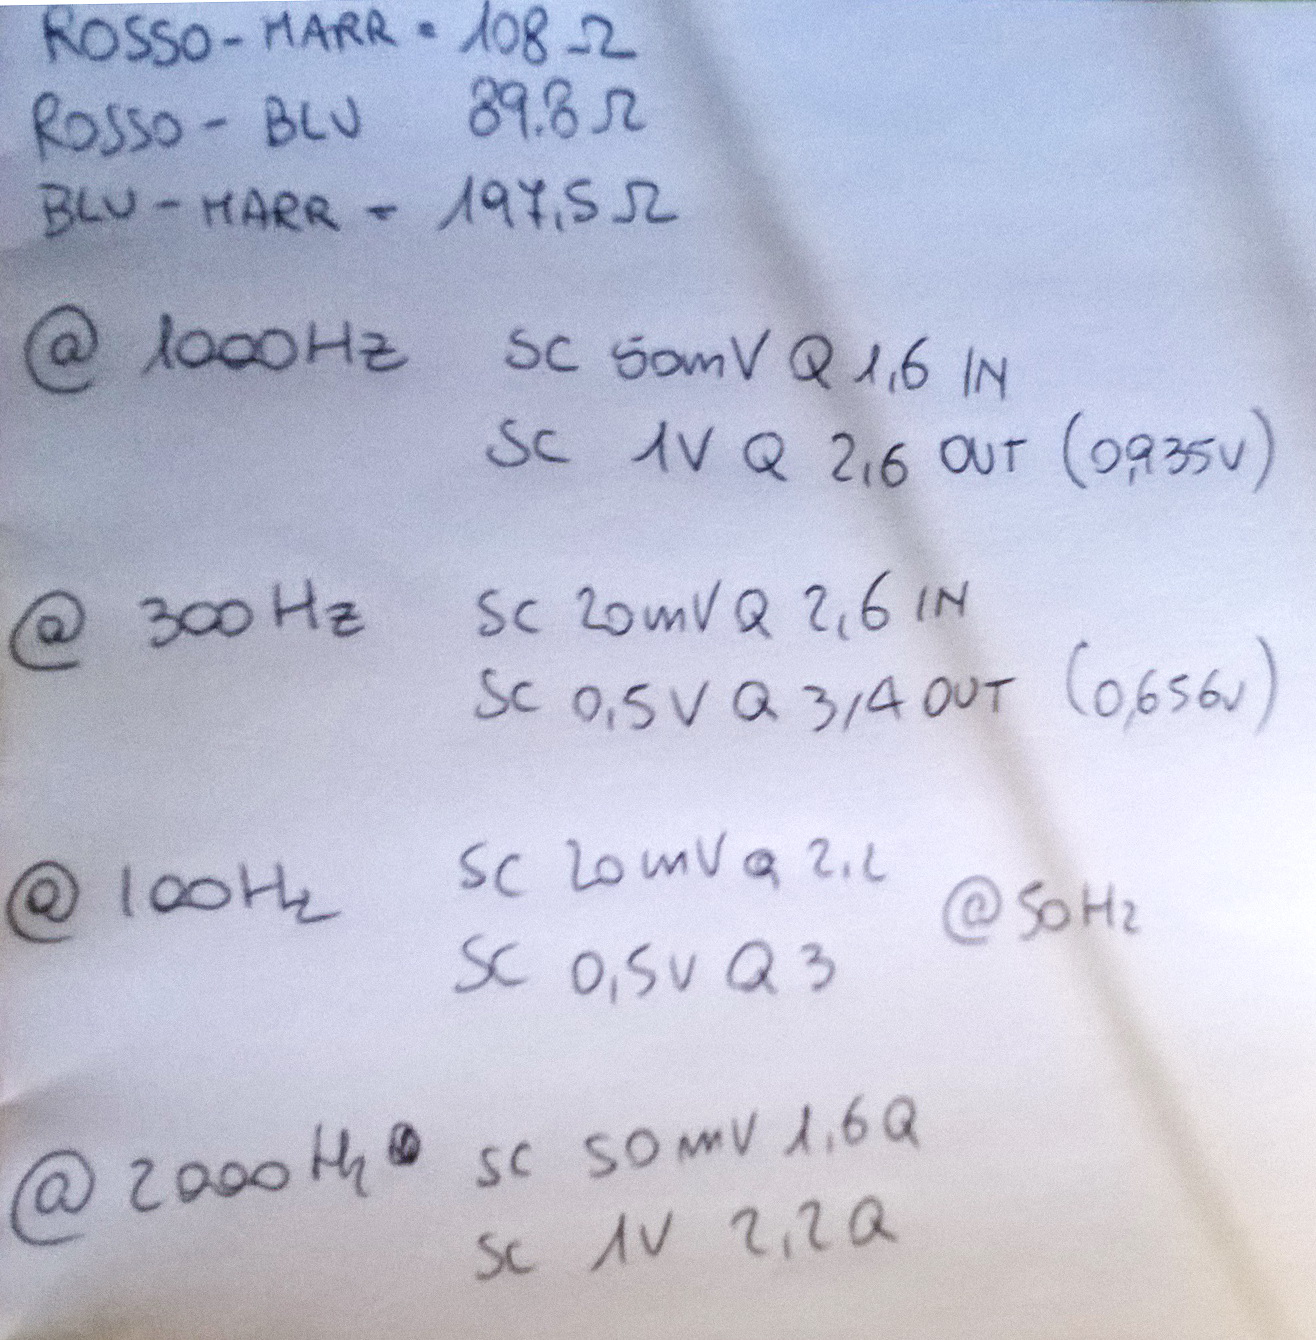 ROSSO - MARR = 108 Ω
ROSSO - BLU 89.8 Ω
BLU - MARR = 197,5 Ω
@ 1000Hz SC 50mV Q 1,6 IN
SC 1V Q 2,6 OUT (0,935V)
@ 300Hz SC 20mV Q 2,6 IN
SC 0,5V Q 3,4 OUT (0,656V)
@ 100Hz SC 20mV Q 2,2
@50Hz
SC 0,5V Q 3
@ 2000Hz SC 50mV 1,6Q
SC 1V 2,2Q